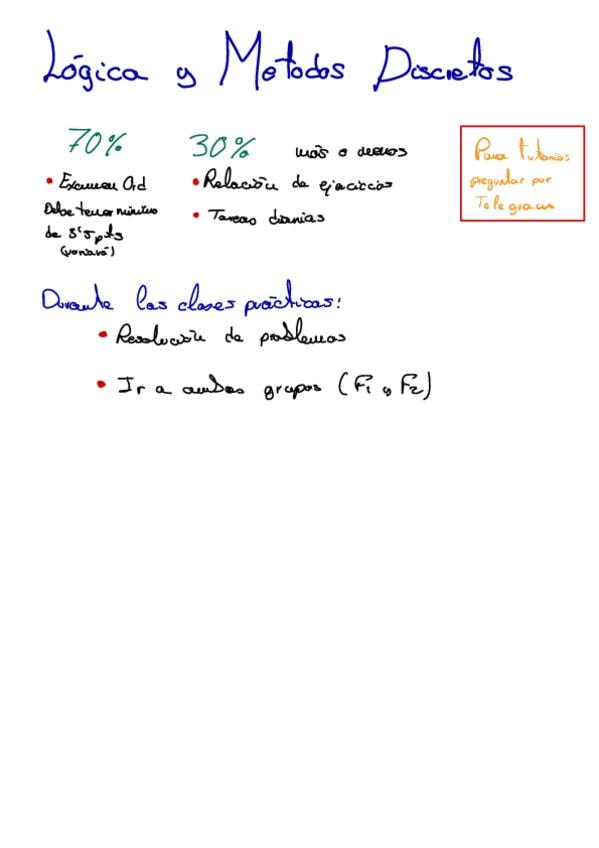 Lógica y Metodos Discretos
70%
• Examen Ord
Debe tener mínimo
de 3'5 pts
(variará)
30% más o menos
• Relación de ejercicios
• Tareas diarias
Para tutorias
preguntar por
Telegram
Durante las clases prácticas:
• Resolución de problemas
• Ir a ambos grupos (F1 y F2)